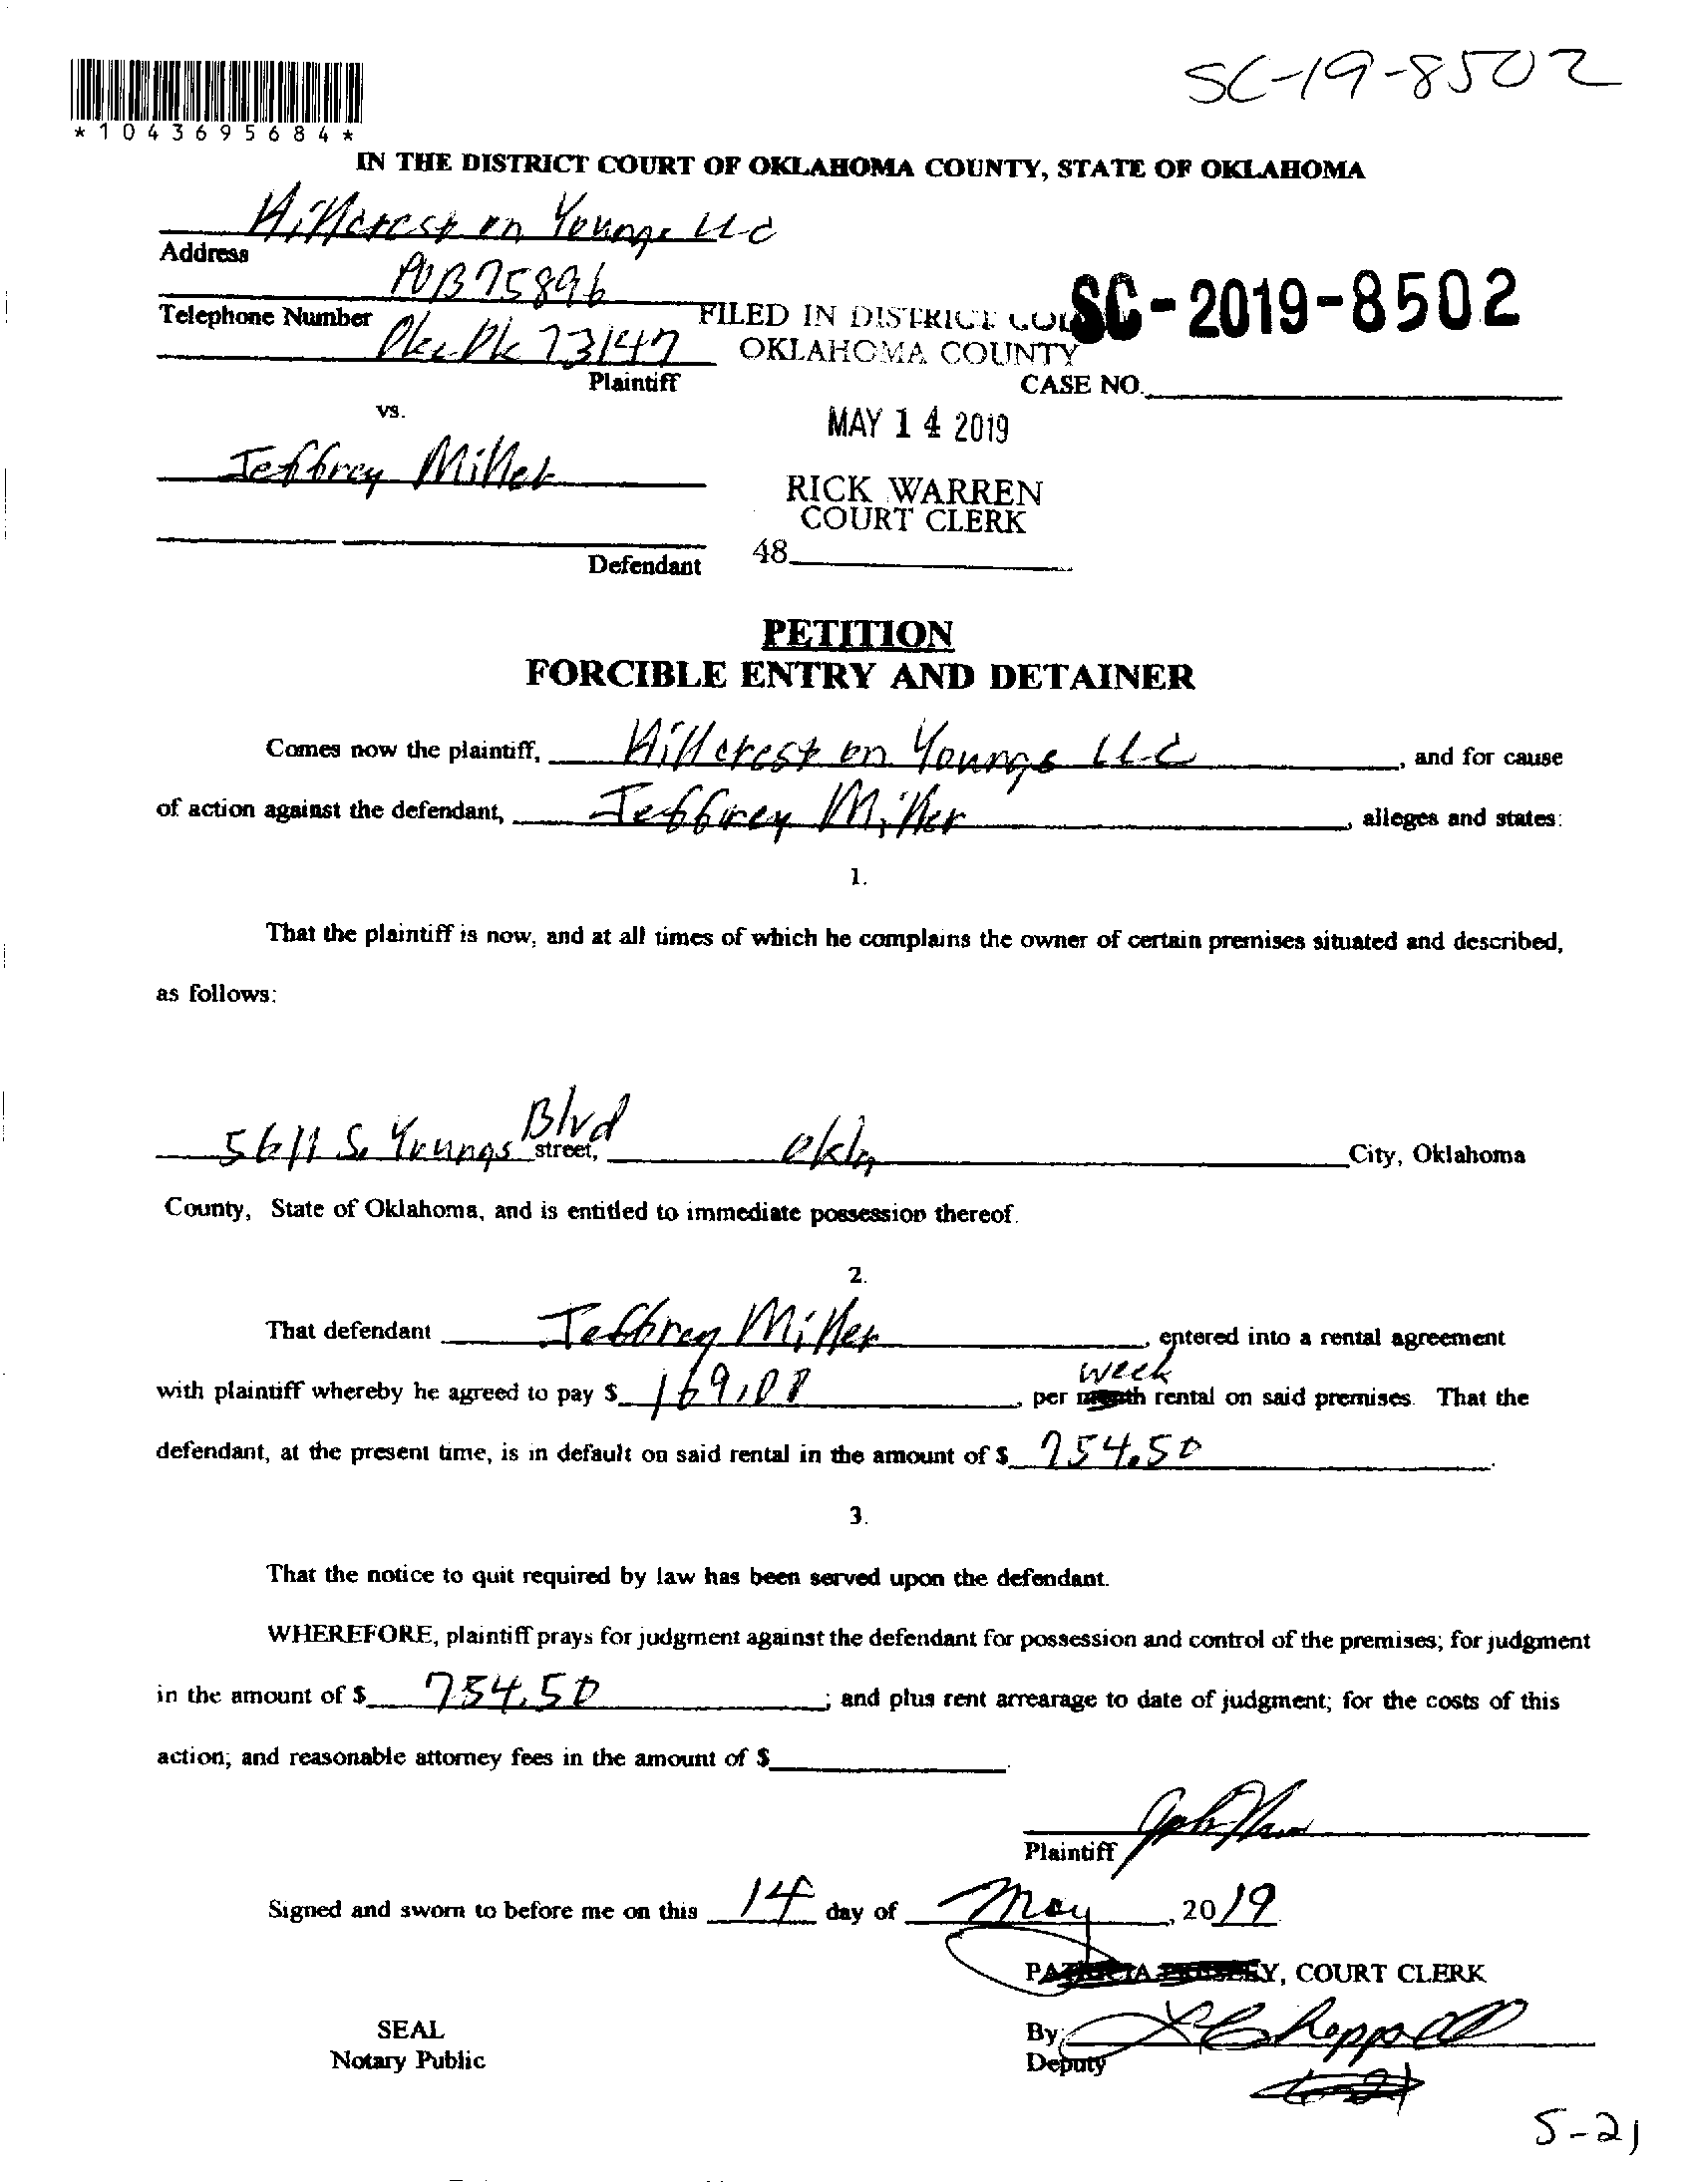 SC-19-8502
*1043695684*
IN THE DISTRICT COURT OF OKLAHOMA COUNTY, STATE OF OKLAHOMA
Hillcrest on Youngs LLC
Address
POB 75896
Telephone Number
FILED IN DISTRICT COU
SC-2019-8502
Okc Ok 73147
OKLAHOMA COUNTY
Plaintiff
CASE NO.
vs.
MAY 14 2019
Jeffrey Miller
RICK WARREN
COURT CLERK
48
Defendant
PETITION
FORCIBLE ENTRY AND DETAINER
Comes now the plaintiff, Hillcrest on Youngs LLC, and for cause
of action against the defendant, Jeffrey Miller, alleges and states:
1.
That the plaintiff is now, and at all times of which he complains the owner of certain premises situated and described,
as follows:
5611 S. Youngs Blvd street, Okla City, Oklahoma
County, State of Oklahoma, and is entitled to immediate possession thereof.
2.
That defendant Jeffrey Miller, entered into a rental agreement
with plaintiff whereby he agreed to pay $ 169.00, per month week rental on said premises. That the
defendant, at the present time, is in default on said rental in the amount of $ 754.50.
3.
That the notice to quit required by law has been served upon the defendant.
WHEREFORE, plaintiff prays for judgment against the defendant for possession and control of the premises; for judgment
in the amount of $ 754.50; and plus rent arrearage to date of judgment; for the costs of this
action; and reasonable attorney fees in the amount of $.
Plaintiff
Signed and sworn to before me on this 14 day of May, 2019
PATRICIA PRESLEY, COURT CLERK
SEAL
By:
Notary Public
Deputy
5-21